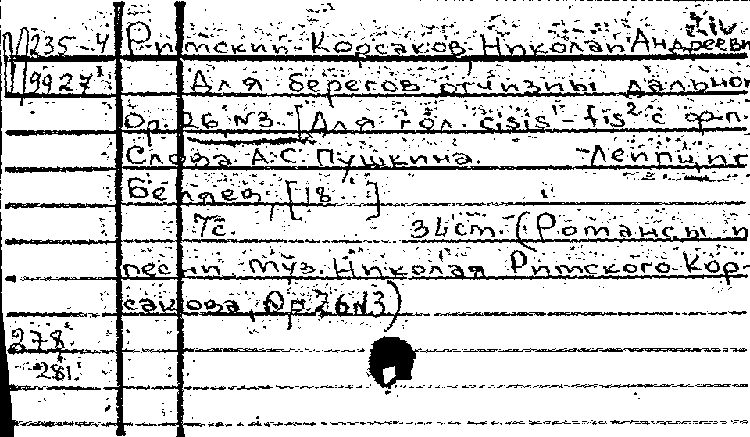 235-4 Римский-Корсаков Николай Андреевич
9927 Для берегов отчизны дальной
Op. 26, N3. [Для гол. cisis¹-fis² с ф-п.
Слова А.С. Пушкина. Лейпциг
Беляев, [18 ]
7с. 34см. (Романсы и
песни муз. Николая Римского-Кор-
сакова, Op. 26 N3)
278
281.